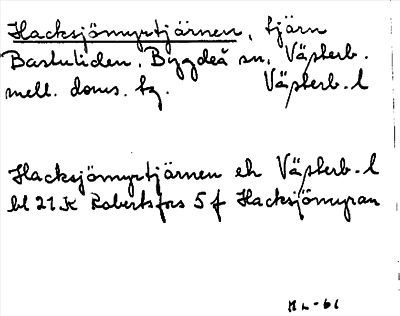 Hacksjömyrtjärnen, tjärn
Bastuliden, Bygdeå sn, Västerb.
mell. doms. bg. Västerb. l
Hacksjömyrtjärnen ek Västerb. l
bl 21 K Robertsfors 5 f Hacksjömyran